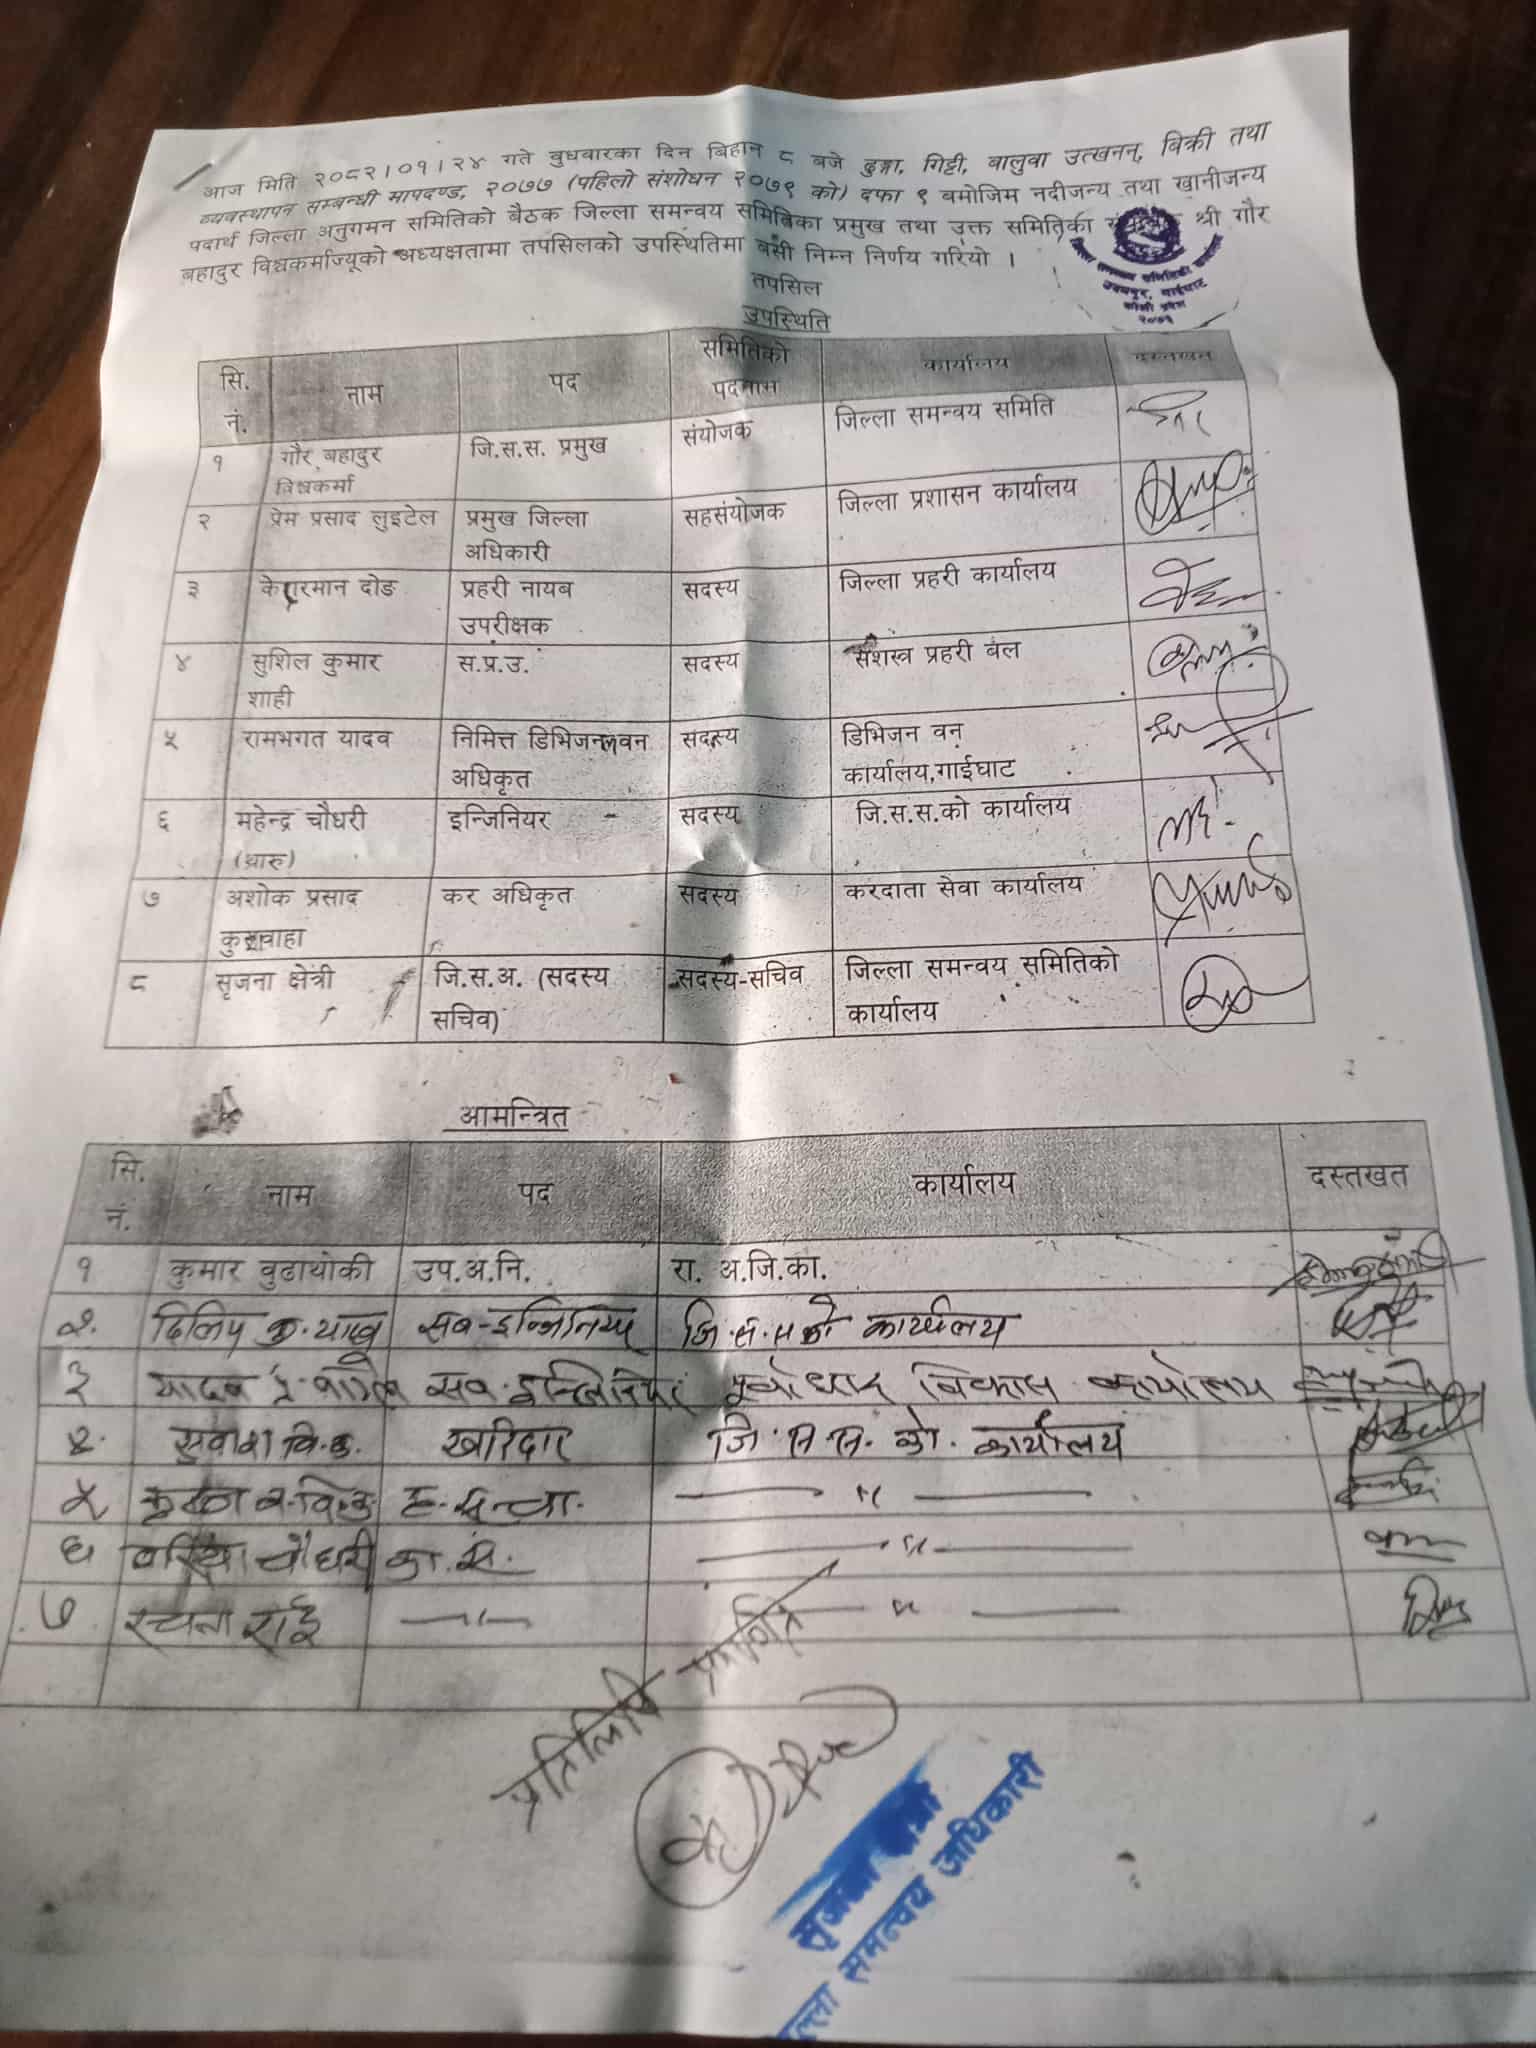 आज मिति २०८२।०१।२४ गते बुधबारका दिन बिहान ८ बजे ढुङ्गा, गिट्टी, बालुवा उत्खनन्, बिक्री तथा
व्यवस्थापन सम्बन्धी मापदण्ड, २०७७ (पहिलो संशोधन २०७९ को) दफा ९ बमोजिम नदीजन्य तथा खानीजन्य
पदार्थ जिल्ला अनुगमन समितिको बैठक जिल्ला समन्वय समितिका प्रमुख तथा उक्त समितिका श्री गौर
बहादुर विश्वकर्माज्यूको अध्यक्षतामा तपसिलको उपस्थितिमा बसी निम्न निर्णय गरियो ।
उदयपुर, गाईघाट
कोशी प्रदेश
२०७३
तपसिल
उपस्थिति
सि. नं. नाम पद समितिको पदनाम कार्यालय दस्तखत
१ गौर बहादुर विश्वकर्मा जि.स.स. प्रमुख संयोजक जिल्ला समन्वय समिति
२ प्रेम प्रसाद लुइटेल प्रमुख जिल्ला अधिकारी सहसंयोजक जिल्ला प्रशासन कार्यालय
३ दोङ प्रहरी नायब उपरीक्षक सदस्य जिल्ला प्रहरी कार्यालय
४ सुशिल कुमार शाही स.प्र.उ. सदस्य सशस्त्र प्रहरी बल
५ रामभगत यादव निमित्त डिभिजनल वन अधिकृत सदस्य डिभिजन वन कार्यालय,गाईघाट
६ महेन्द्र चौधरी (थारु) इन्जिनियर सदस्य जि.स.स.को कार्यालय
७ अशोक प्रसाद कुशवाहा कर अधिकृत सदस्य करदाता सेवा कार्यालय
८ सृजना क्षेत्री जि.स.अ. (सदस्य सचिव) सदस्य-सचिव जिल्ला समन्वय समितिको कार्यालय
आमन्त्रित
सि. नं. नाम पद कार्यालय दस्तखत
१ कुमार वुढाथोकी उप.अ.नि. रा. अ.जि.का.
२. दिलिप कु. सब-इन्जिनियर जि.स.स को कार्यालय
३ यादव प्र. सब-इन्जिनियर पूर्वाधार विकास कार्यालय
४. सुवाश वि.क. खरिदार जि.स.स. को. कार्यालय
५ ब. वि.क. ह.स.चा. — " —
६ चौधरी का.स. — " —
७ रचना राई — " — — " —
प्रतिलिपि प्रमाणित
सृजना क्षेत्री
जिल्ला समन्वय अधिकारी